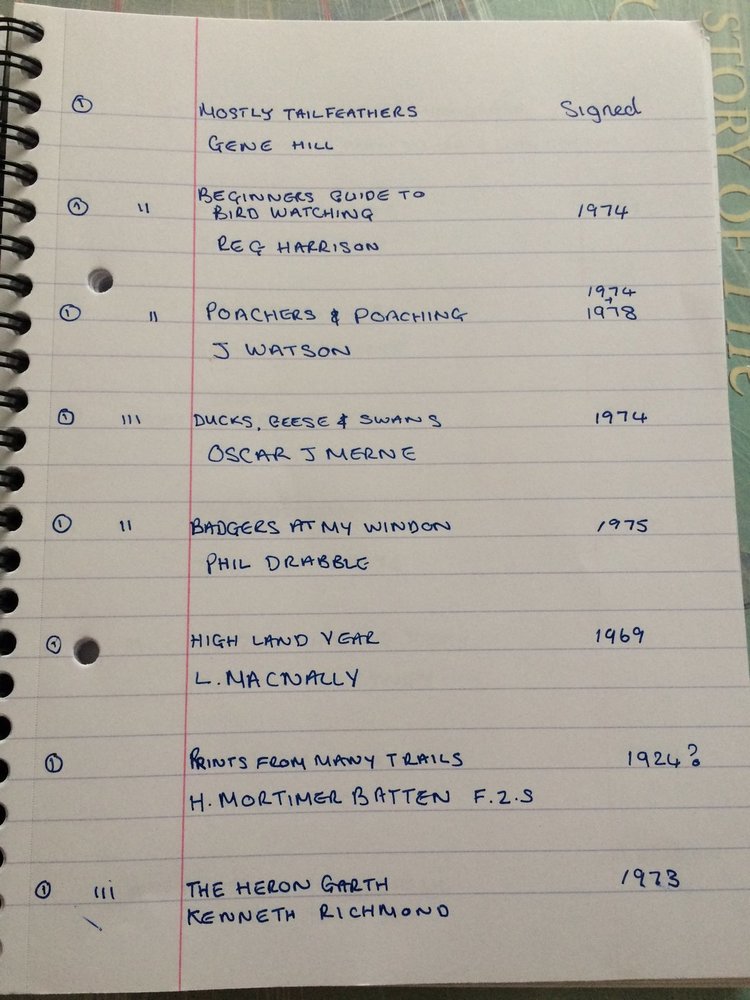 ① MOSTLY TAILFEATHERS Signed
GENE HILL
① 11 BEGINNERS GUIDE TO
BIRD WATCHING 1974
REG HARRISON
1974
+
① 11 POACHERS & POACHING 1978
J WATSON
① 111 DUCKS, GEESE & SWANS 1974
OSCAR J MERNE
① 11 BADGERS AT MY WINDOW 1975
PHIL DRABBLE
① HIGH LAND YEAR 1969
L. MACNALLY
① PRINTS FROM MANY TRAILS 1924?
H. MORTIMER BATTEN F.Z.S
① 111 THE HERON GARTH 1973
KENNETH RICHMOND
STORY OF THE